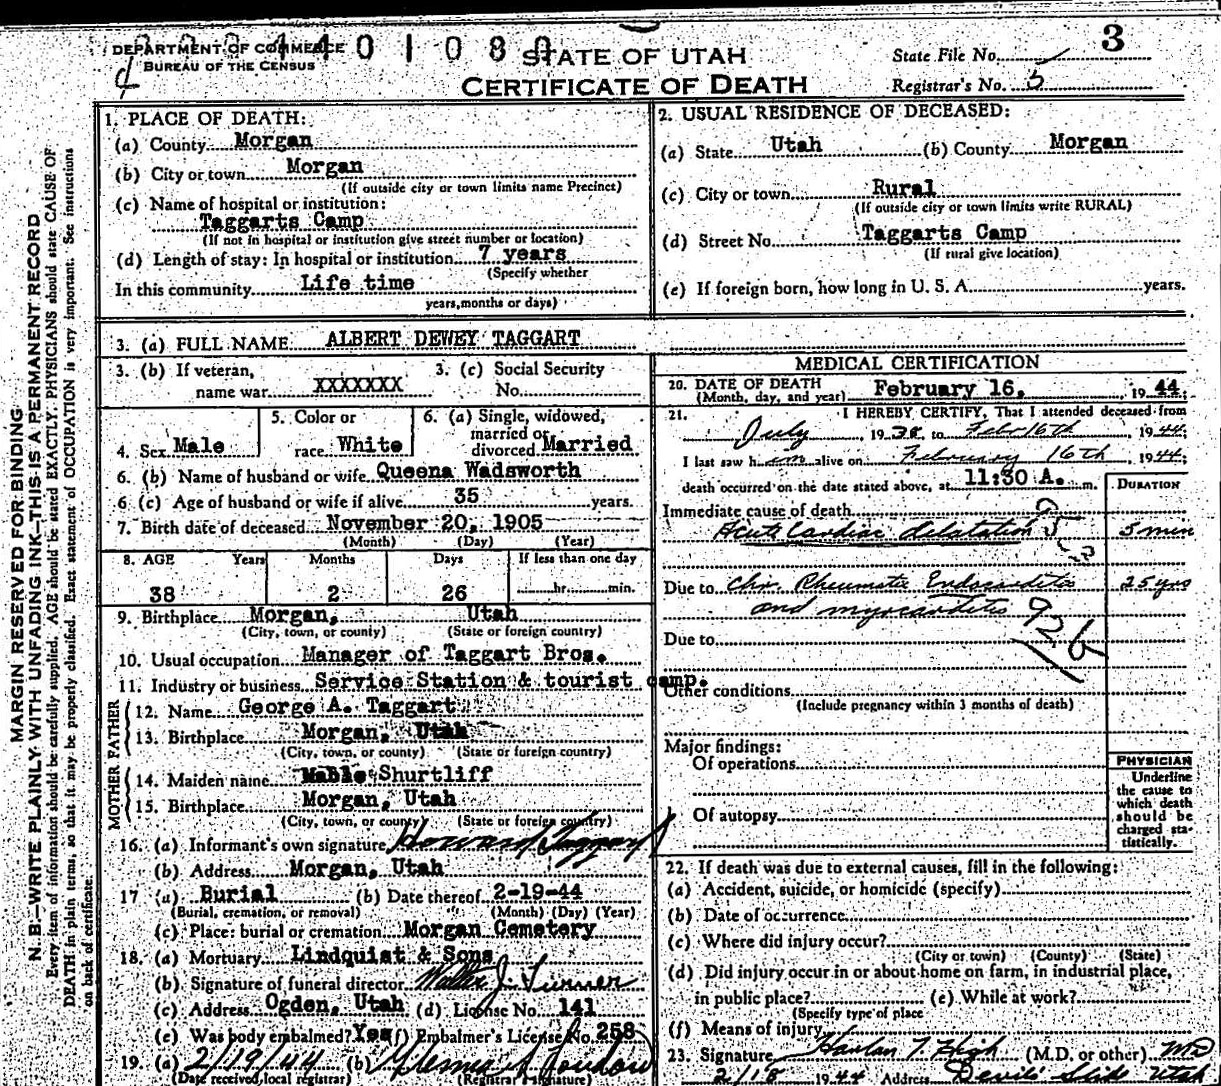 DEPARTMENT OF COMMERCE
BUREAU OF THE CENSUS
STATE OF UTAH
CERTIFICATE OF DEATH
State File No. 3
Registrar's No. 5
MARGIN RESERVED FOR BINDING
N. B.—WRITE PLAINLY WITH UNFADING INK—THIS IS A PERMANENT RECORD
Every item of information should be carefully supplied. AGE should be stated EXACTLY. PHYSICIANS should state CAUSE OF
DEATH in plain terms, so that it may be properly classified. Exact statement of OCCUPATION is very important. See instructions
on back of certificate.
1. PLACE OF DEATH:
(a) County Morgan
(b) City or town Morgan
(If outside city or town limits name Precinct)
(c) Name of hospital or institution:
Taggarts Camp
(If not in hospital or institution give street number or location)
(d) Length of stay: In hospital or institution 7 years
(Specify whether
In this community Life time
years, months or days)
2. USUAL RESIDENCE OF DECEASED:
(a) State Utah (b) County Morgan
(c) City or town Rural
(If outside city or town limits write RURAL)
(d) Street No. Taggarts Camp
(If rural give location)
(e) If foreign born, how long in U. S. A. years.
3. (a) FULL NAME ALBERT DEWEY TAGGART
3. (b) If veteran, 3. (c) Social Security
name war XXXXXXX No.
5. Color or 6. (a) Single, widowed,
married or
4. Sex Male race White divorced Married
6. (b) Name of husband or wife Queena Wadsworth
6 (c) Age of husband or wife if alive 35 years.
7. Birth date of deceased November 20, 1905
(Month) (Day) (Year)
8. AGE Years Months Days If less than one day
38 2 26 hr. min.
9. Birthplace Morgan, Utah
(City, town, or county) (State or foreign country)
10. Usual occupation Manager of Taggart Bros.
11. Industry or business Service Station & tourist camp.
FATHER
12. Name George A. Taggart
13. Birthplace Morgan, Utah
(City, town, or county) (State or foreign country)
MOTHER
14. Maiden name Mable Shurtliff
15. Birthplace Morgan, Utah
(City, town, or county) (State or foreign country)
16. (a) Informant's own signature Howard Taggart
(b) Address Morgan, Utah
17 (a) Burial (b) Date thereof 2-19-44
(Burial, cremation, or removal) (Month) (Day) (Year)
(c) Place: burial or cremation Morgan Cemetery
18. (a) Mortuary Lindquist & Sons
(b) Signature of funeral director Walter J. Turner
(c) Address Ogden, Utah (d) License No. 141
(e) Was body embalmed? Yes (f) Embalmer's License No. 258
19. (a) 2/19/44 (b)
(Date received local registrar) (Registrar's signature)
MEDICAL CERTIFICATION
20. DATE OF DEATH February 16, 1944
(Month, day, and year)
21. I HEREBY CERTIFY, That I attended deceased from
July, 1938 to Febr 16th 1944;
I last saw him alive on February 16th, 1944;
death occurred on the date stated above, at 11:30 A. m.
DURATION
Immediate cause of death
Acute Cardiac dilatation 5 min
95c
Due to Chr. Rheumatic Endocarditis 25 yrs
and myocarditis
92b
Due to
Other conditions
(Include pregnancy within 3 months of death)
Major findings:
Of operations
Of autopsy
PHYSICIAN
Underline
the cause to
which death
should be
charged sta-
tistically.
22. If death was due to external causes, fill in the following:
(a) Accident, suicide, or homicide (specify)
(b) Date of occurrence
(c) Where did injury occur?
(City or town) (County) (State)
(d) Did injury occur in or about home on farm, in industrial place,
in public place? (e) While at work?
(Specify type of place
(f) Means of injury
23. Signature Harlan T. High (M.D. or other) MD
2/18 1944 Address Devils Slide Utah